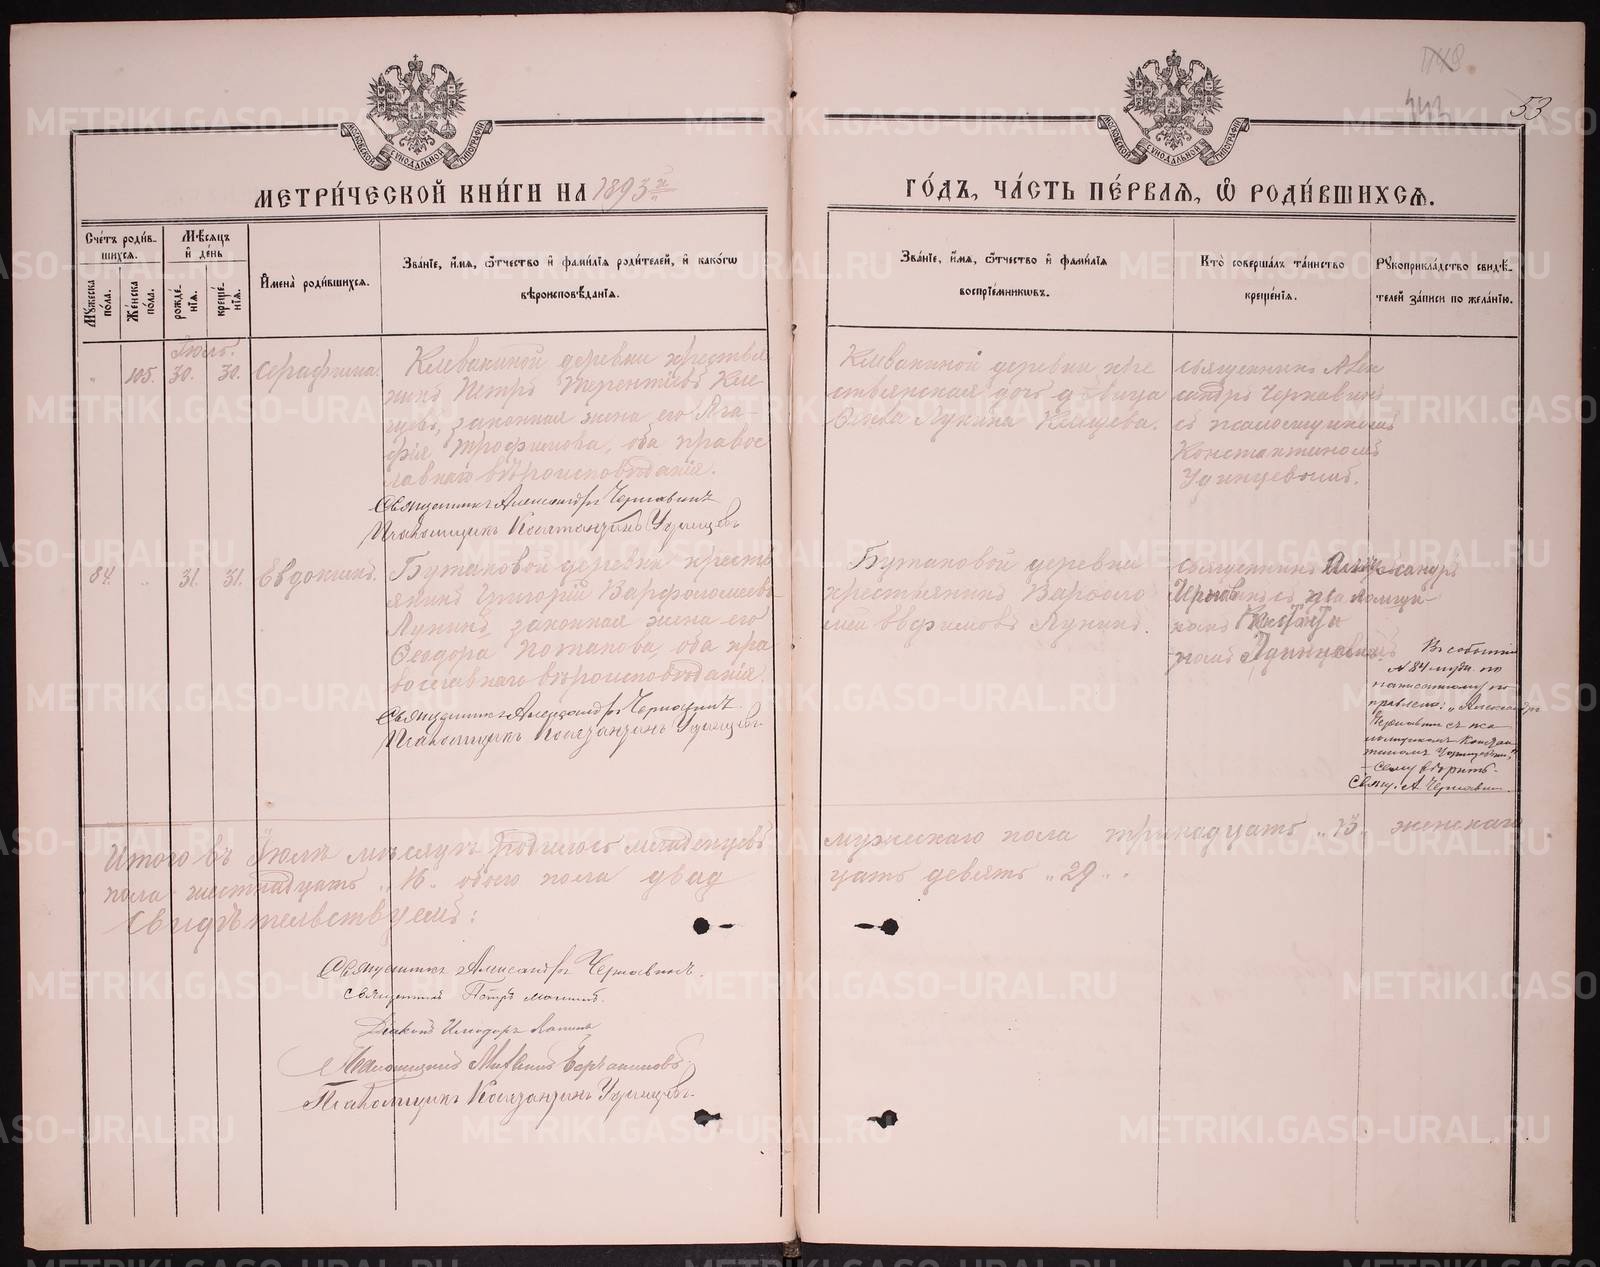 53
МОСКОВСКОЙ СѴНОДАЛЬНОЙ ТИПОГРАФІИ
МОСКОВСКОЙ СѴНОДАЛЬНОЙ ТИПОГРАФІИ
МЕТРИ́ЧЕСКОЙ КНИ́ГИ НА 1893й
ГО́ДЪ, ЧА́СТЬ ПЕ́РВАѦ, Ѽ РОДИ́ВШИХСѦ.
Сче́тъ роди́вшихсѧ.
Мꙋ́жеска пола.
Же́нска пола.
Мѣ́сѧцъ и҆ де́нь
рожде́нїѧ.
креще́нїѧ.
И҆мена̀ роди́вшихсѧ.
Зва́нїе, и҆́мѧ, ѻ҆́тчество и҆ фами́лїѧ роди́телей, и҆ како́гѡ
вѣроисповѣ́данїѧ.
Зва́нїе, и҆́мѧ, ѻ҆́тчество и҆ фами́лїѧ
воспрїе́мникѡвъ.
Кто̀ соверша́лъ та́инство
креще́нїѧ.
Рꙋкоприкла́дство свидѣ́телей за́писи по жела́нїю.
Іюль.
" 105. 30. 30. Серафима
Клевакиной деревни крестья
нинъ Петръ Терентіевъ Кле
щевъ, законная жена его Ага-
фія Трофимова, оба правос
лавнаго вѣроисповѣданія.
Священникъ Александръ Чернавинъ
Псаломщикъ Константинъ Удинцевъ
Клевакиной деревни кре
стьянская дочь дѣвица
Лукина Клещева.
священникъ Алек
сандръ Чернавинъ
съ псаломщикомъ
Константиномъ
Удинцевымъ.
84. " 31. 31. Евдокимъ.
Бутаковой деревни кресть
янинъ Григорій Варфоломеевъ
Лукинъ, законная жена его
Ѳеодора Потапова, оба пра
вославнаго вѣроисповѣданія.
Священникъ Александръ Чернавинъ
Псаломщикъ Константинъ Удинцевъ
Бутаковой деревни
крестьянинъ Варѳоло
мей Евфимовъ Лукинъ.
священникъ Александръ
Чернавинъ съ псаломщи-
комъ Констант
номъ Удинцевымъ
Въ событіи
№ 84 по
написанному по
правлено: „Александръ
Чернавинъ съ пса
ломщикомъ Констан
тиномъ Удинцевымъ"
- сему вѣрить.
Свящ. А. Чернавин
Итого въ Іюлѣ мѣсяцѣ родилось младенцевъ мужескаго пола тринадцать „13„ женскаго
пола шестнадцать „16„ обоего пола двад цать девять „29„.
Свидѣтельствуемъ:
Священникъ Александръ Чернавинъ.
Священникъ Петръ
Діаконъ
Псаломщикъ
Псаломщикъ Константинъ Удинцевъ.
METRIKI.GASO-URAL.RU